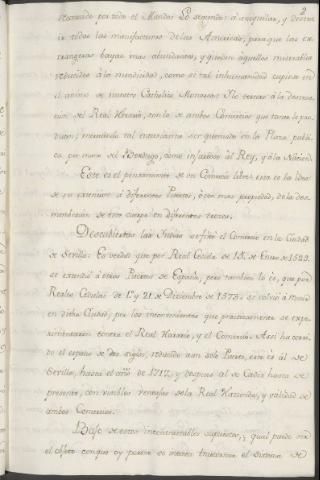 2
derramado por todo el Mundo: Lo segundo: á aniquilar, y destru-
ir todas las manufacturas de las Americas, para que las ex-
trangeras bayan mas abundantes, y queden aquellos miserables
reducidos á la mendicidad, como si tal inhumanidad cupiese en
el animo de nuestro Catholico Monarca: Y lo tercero á la destruc-
cion del Real Herario, con la de ambos Comercios que tanto le pro-
ducen; mereciendo tal entusiasmo ser quemado en la Plaza publi-
ca por mano del Berdugo, como infidente al Rey, y á la Nacion.
Este es el pensamiento de un Comercio libre: esta es la idea
de su extension á diferentes Puertos, ó con mas propiedad, de la des-
membracion de este cuerpo en diferentes trozos.
Descubiertas las Indias se fixó el Comercio en la Ciudad
de Sevilla: Es verdad que por Real Cedula de 15. de Enero de 1529.
se extendió á otros Puertos de España, pero tambien lo es, que por
Reales Cedulas de 1.º y 21 de Diciembre de 1573. se volvió á
en dicha Ciudad, por los inconvenientes que practicamente se expe-
rimentaron contra el Real Herario, y el Comercio. Asi ha corri-
do el espacio de dos siglos, reducido á un solo Puerto, esto es al de
Sevilla, hasta el año de 1717, y despues al de Cadiz hasta el
presente, con visibles ventajas de la Real Hacienda, y utilidad de
ambos Comercios.
Baxo de estos incontrastables supuestos, ¿qual puede ser
el objeto conque oy pueda se intente trastornar el sistema de